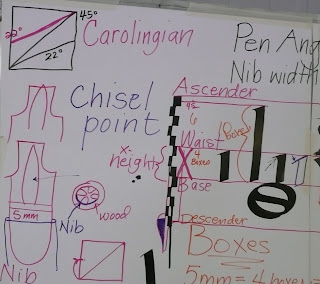 45°
22°
22°
Carolingian
Pen Ang
Nib width
Chisel
point
Ascender
Waist
x-
height
4
Boxes
Base
Descender
5mm
Nib
wood
Nib
Boxes
5mm = 4 boxes =